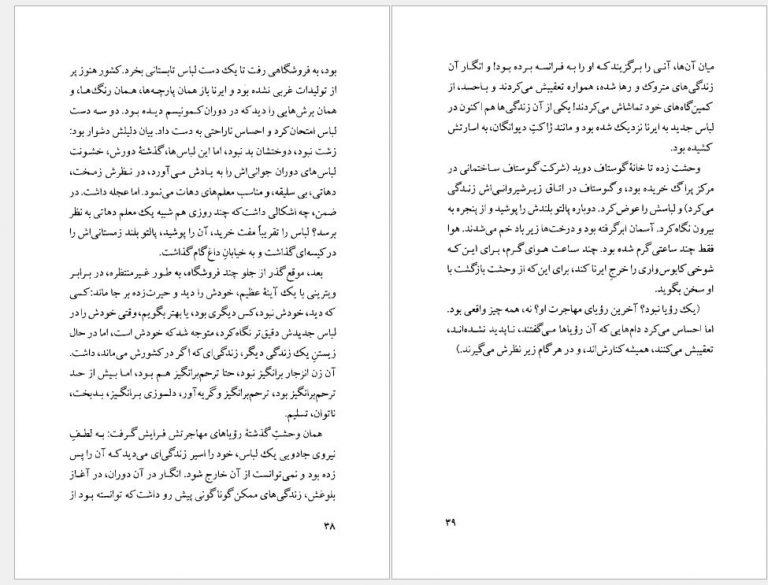 بود، به فروشگاهی رفت تا یك دست لباس تابستانی بخرد. کشور هنوز پر
از تولیدات غربی نشده بود و ایرنا باز همان پارچه‌ها، همان رنگ‌ها، و
همان برش‌هایی را دید که در دوران کمونیسم دیده بود. دو سه دست
لباس امتحان کرد و احساس ناراحتی به دست داد. بیان دلیلش دشوار بود:
زشت نبود، دوختشان بد نبود، اما این لباس‌ها، گذشتهٔ دورش، خشونت
لباس‌های دوران جوانی‌اش را به یادش می‌آورد، در نظرش زمخت،
دهاتی، بی سلیقه، و مناسب معلم‌های دهات می‌نمود. اما عجله داشت. در
ضمن، چه اشکالی داشت که چند روزی هم شبیه یك معلم دهاتی به نظر
برسد؟ لباس را تقریباً مفت خرید، آن را پوشید، پالتو بلند زمستانی‌اش را
در کیسه‌ای گذاشت و به خیابانِ داغ گام گذاشت.
بعد، موقع گذر از جلو چند فروشگاه، به طور غیرمنتظره، در برابر
ویترینی با یك آینهٔ عظیم، خودش را دید و حیرت‌زده بر جا ماند: کسی
که دید، خودش نبود، کس دیگری بود، یا بهتر بگویم، وقتی خودش را در
لباس جدیدش دقیق‌تر نگاه کرد، متوجه شد که خودش است، اما در حال
زیستنِ یك زندگی دیگر، زندگی‌ای که اگر در کشورش می‌ماند، داشت.
آن زن انزجار برانگیز نبود، حتا ترحم‌برانگیز هم بود، اما بیش از حد
ترحم‌برانگیز بود، ترحم‌برانگیز و گریه‌آور، دلسوزی برانگیز، بدبخت،
ناتوان، تسلیم.
همان وحشتِ گذشتهٔ رؤیاهای مهاجرتش فرایش گرفت: به لطفِ
نیروی جادویی یك لباس، خود را اسیر زندگی‌ای می‌دید که آن را پس
زده بود و نمی‌توانست از آن خارج شود. انگار در آن دوران، در آغاز
بلوغش، زندگی‌های ممکن گوناگونی پیش رو داشت که توانسته بود از
۳۸
میان آن‌ها، آنی را برگزیند که او را به فرانسه برده بود! و انگار آن
زندگی‌های متروك و رها شده، همواره تعقیبش می‌کردند و باحسد، از
کمین‌گاه‌های خود تماشاش می‌کردند! یکی از آن زندگی‌ها هم اکنون در
لباس جدید به ایرنا نزدیك شده بود و مانند ژاکتِ دیوانگان، به اسارتش
کشیده بود.
وحشت زده تا خانهٔ گوستاف دوید (شرکت گوستاف ساختمانی در
مرکز پراگ خریده بود، و گوستاف در اتاق زیرشیروانی‌اش زندگی
می‌کرد) و لباسش را عوض کرد. دوباره پالتو بلندش را پوشید و از پنجره به
بیرون نگاه کرد. آسمان ابر گرفته بود و درخت‌ها زیر باد خم می‌شدند. هوا
فقط چند ساعتی گرم شده بود. چند ساعت هوای گرم، برای این‌که
شوخی کابوس‌واری را خرج ایرنا کند، برای این‌که از وحشت بازگشت با
او سخن بگوید.
(یك رؤیا نبود؟ آخرین رؤیای مهاجرت او؟ نه، همه چیز واقعی بود.
اما احساس می‌کرد دام‌هایی که آن رؤیاها می‌گفتند، ناپدید نشده‌اند،
تعقیبش می‌کنند، همیشه کنارش‌اند، و در هر گام زیر نظرش می‌گیرند.)
۳۹